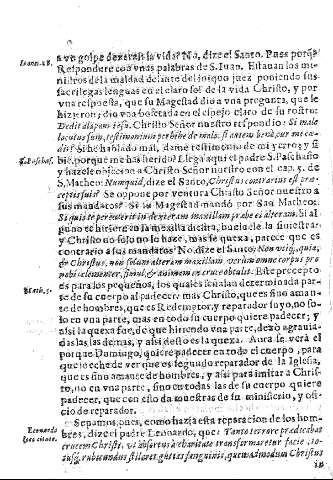 a vn golpe dexerais la vida? No, dize el Santo. Pues porq̃?
Ioann. 18. Respondere con vnas palabras de S. Iuan. Estauan los mi-
nistros de la maldad delante del iniquo juez poniendo sus
sacrilegas lenguas en el claro sol de la vida Christo, y por
vna respuesta, que su Magestad dio a vna pregunta, que le
hizieron; dio vna bofetada en el espejo claro de su rostro:
Dedit alapam Iesu. Christo Señor nuestro respondio: Si male
locutus sum, testimonium perhibe de malo: si autem bene, cur me cæ-
dis? Si he hablado mal, dame testimonio de mi yerro; y si
bie, porque me has herido? Llega aqui el padre S. Paschasio
y hazele objecion a Christo Señor nuestro con el cap. 5. de
S. Matheo: Numquid, dize el Santo, Christus contrarius est præ-
ceptis suis? Se opone por ventura Christo Señor nuestro a
sus mandatos? Si su Magestad mandò por San Matheo:
Si quis te percusserit in dexteram maxillam præbe ei alteram. Si al
guno te hiriere en la mexilla diestra, buelue la siniestra:
y Christo no solo no lo haze, mas se quexa, parece que es
contrario a sus mandatos? No dize el Santo: Non vtiq; quia,
& Christus, non solum alteram maxillam, verum omne corpus pro
nobis clementer,
Math. 5. es para los pequeños, los quales señalan determinada par-
te de su cuerpo al padecer: mas Christo, que es fino aman-
te de hombres, que es Redemptor, y reparador suyo, no so-
lo en vna parte, mas en todo su cuerpo quiere padecer; y
assi la quexa fue, de que hiriendo vna parte, dexò agrauia-
das las demas, y assi desto es la quexa. Aura se verà el
porque Domingo, quiere padecer en todo el cuerpo, para
que se eche de ver que es segundo reparador de la Iglesia,
que es fino amante de hombres, y assi para imitar a Chris-
to, no en vna parte, sino en todas las de su cuerpo quiere
padecer, que con esto da muestras de su ministerio, y ofi-
cio de reparador.
Leonardo loco citato. Sepamos, como hazia esta reparacion de los hom-
bres, dize el padre Leonardo, que: Tanto terrore prædicabat
crucem Christi, vt absortus à charitate transformaretur facie, to-
tusq; rubicundus stillaret guttas sanguinis, quemadmodum Christus
in